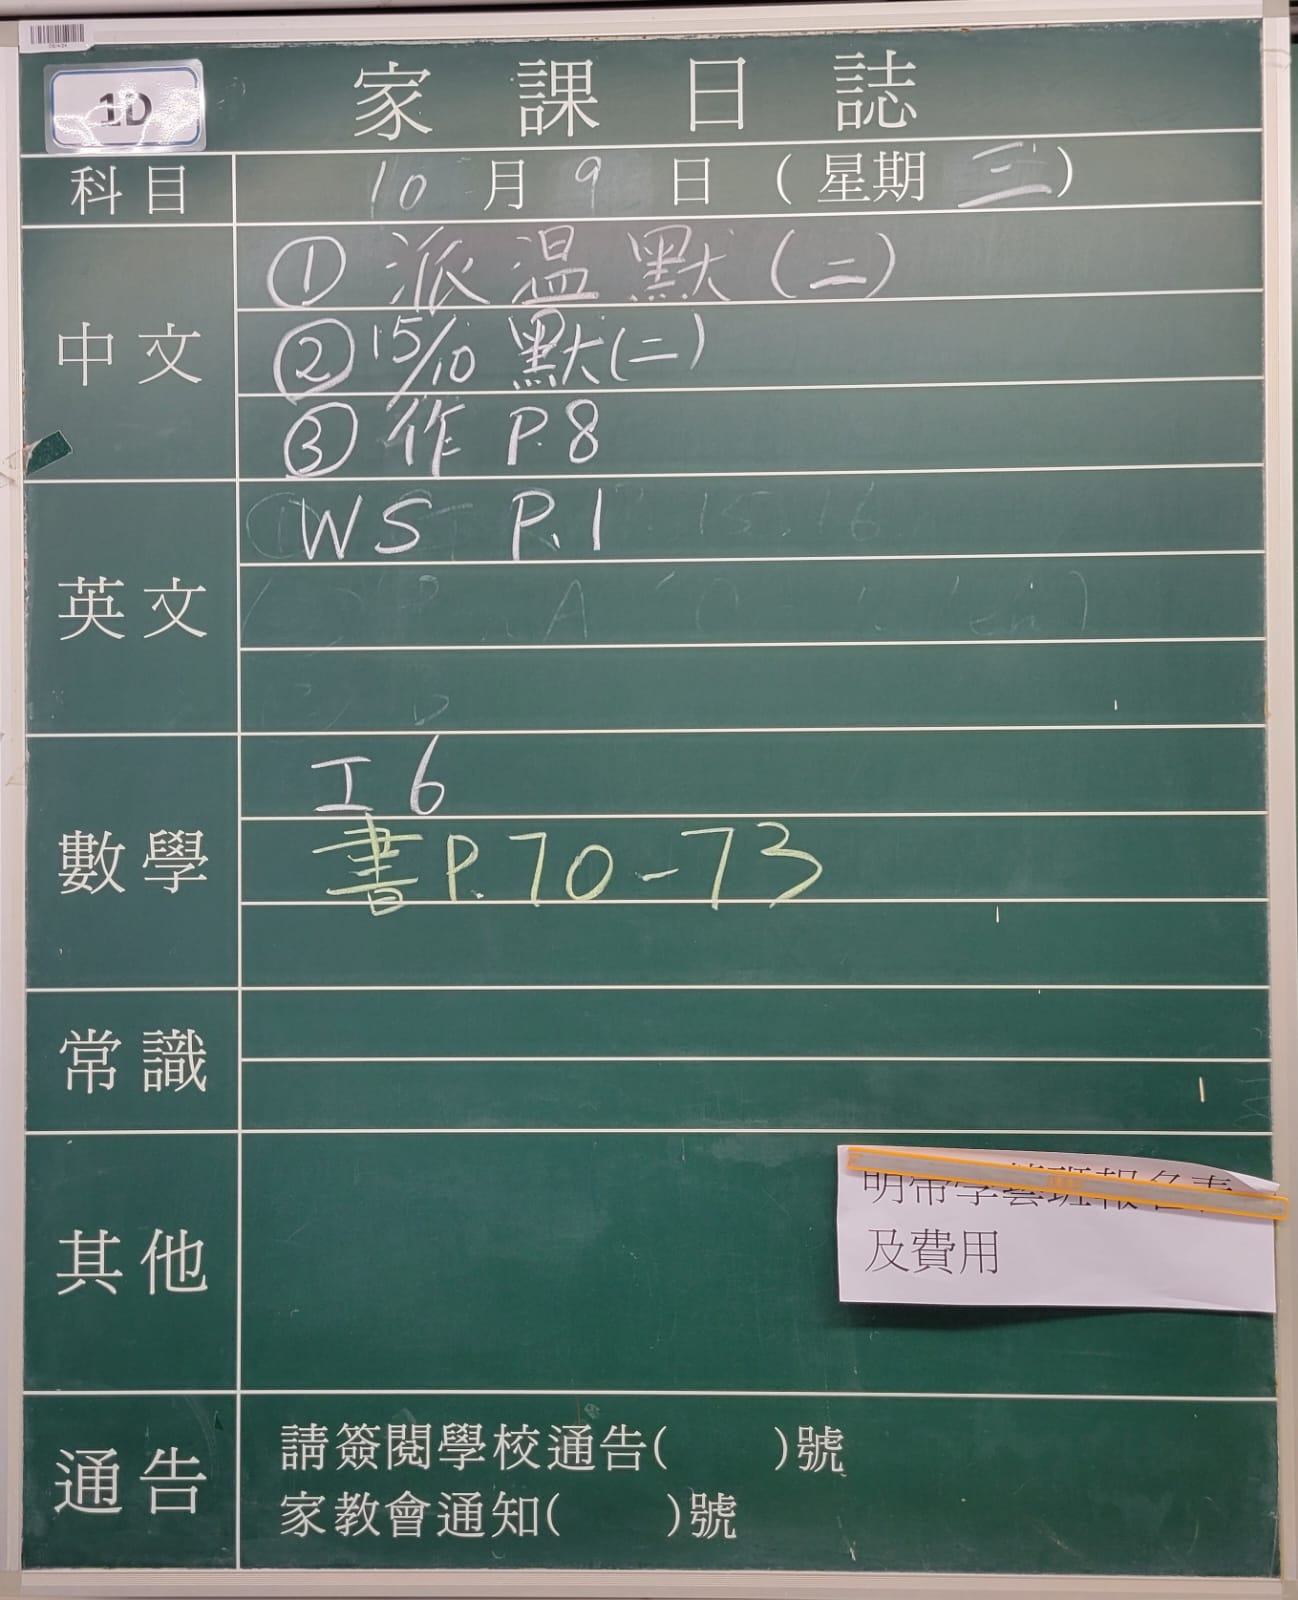 1D
家課日誌
科目 10月9日（星期三）
中文
① 派温默(二)
② 15/10 默(二)
③ 作 P.8
英文
WS P.1
數學
工6
書P.70-73
常識
其他
明帶學藝班報名表
及費用
通告
請簽閱學校通告( )號
家教會通知( )號